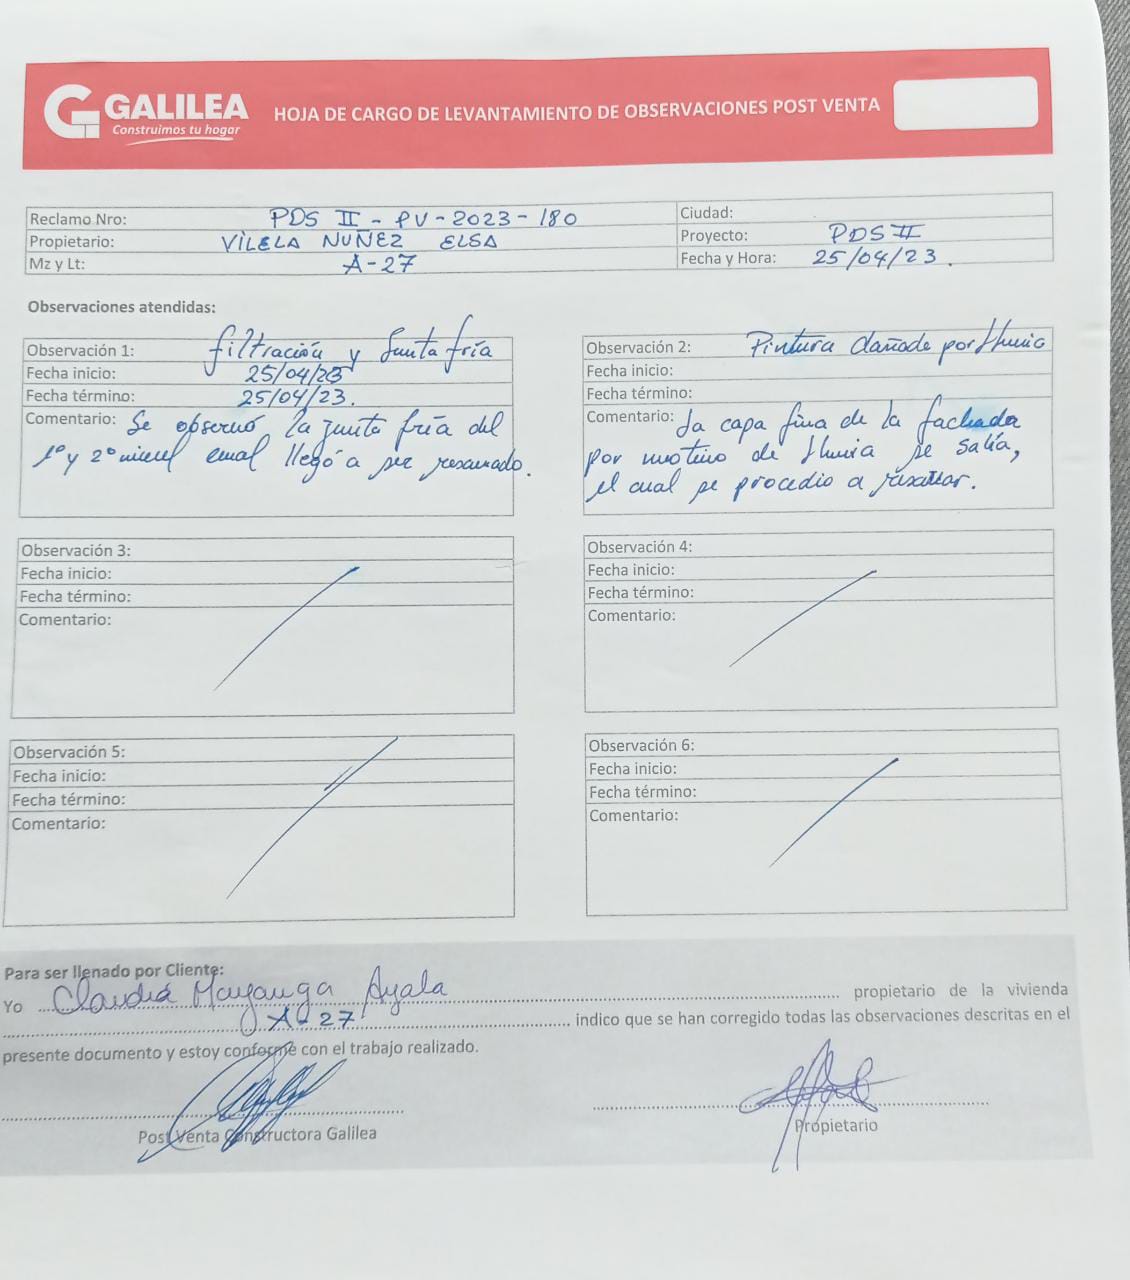 GALILEA
Construimos tu hogar
HOJA DE CARGO DE LEVANTAMIENTO DE OBSERVACIONES POST VENTA
Reclamo Nro: PDS II - PV - 2023 - 180
Ciudad:
Propietario: VILELA NUÑEZ ELSA
Proyecto: PDS II
Mz y Lt: A-27
Fecha y Hora: 25/04/23.
Observaciones atendidas:
Observación 1: filtración y Junta fría
Fecha inicio: 25/04/23
Fecha término: 25/04/23.
Comentario: Se observó la junta fría del
1º y 2º nivel cual llegó a ser resanado.
Observación 2: Pintura dañada por lluvia
Fecha inicio:
Fecha término:
Comentario: La capa fina de la fachada
por motivo de lluvia se salía,
el cual se procedio a resanar.
Observación 3:
Fecha inicio:
Fecha término:
Comentario:
Observación 4:
Fecha inicio:
Fecha término:
Comentario:
Observación 5:
Fecha inicio:
Fecha término:
Comentario:
Observación 6:
Fecha inicio:
Fecha término:
Comentario:
Para ser llenado por Cliente:
Yo Claudia Mayanga Ayala propietario de la vivienda
A-27 indico que se han corregido todas las observaciones descritas en el
presente documento y estoy conforme con el trabajo realizado.
Post Venta Constructora Galilea
Propietario